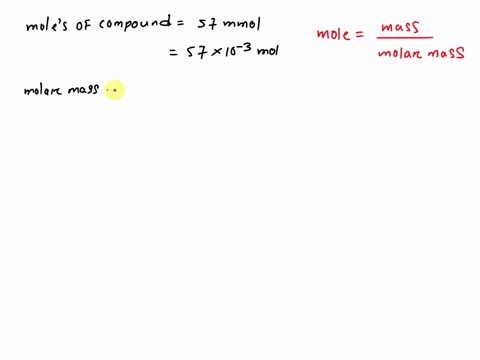 mole's of compound = 57 mmol
= 57 × 10⁻³ mol
molare mass
mole = mass / molare mass